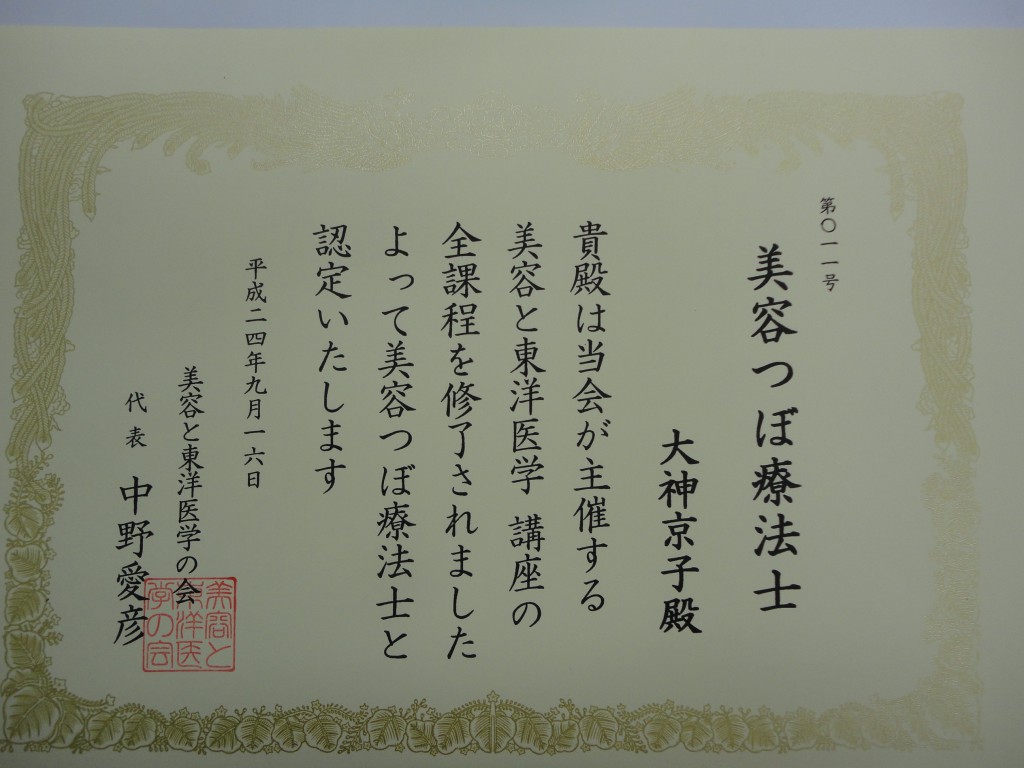 第〇一一号
美容つぼ療法士
大神京子殿
貴殿は当会が主催する
美容と東洋医学 講座の
全課程を修了されました
よって美容つぼ療法士と
認定いたします
平成二四年九月一六日
美容と東洋医学の会
代表 中野愛彦
美容と
東洋医
学の会